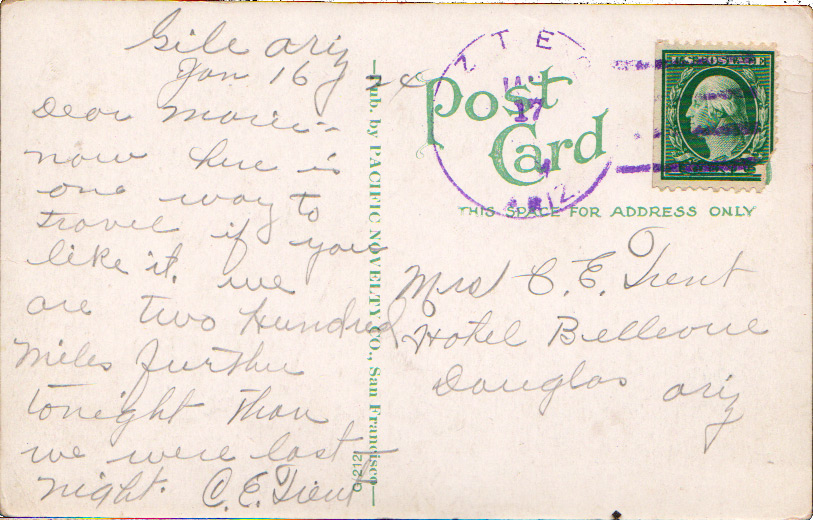 Gile Ariz
Jan 16 24
Dear Marie--
now here is
one way to
travel if you
like it. we
are two Hundred
Miles further
tonight than
we were last
night. C. E. Trent
Pub. by PACIFIC NOVELTY CO., San Francisco
O-212
Post
Card
THIS SPACE FOR ADDRESS ONLY
17
ARIZ.
U.S. POSTAGE
Mrs C. E. Trent
Hotel Bellevue
Douglas Ariz